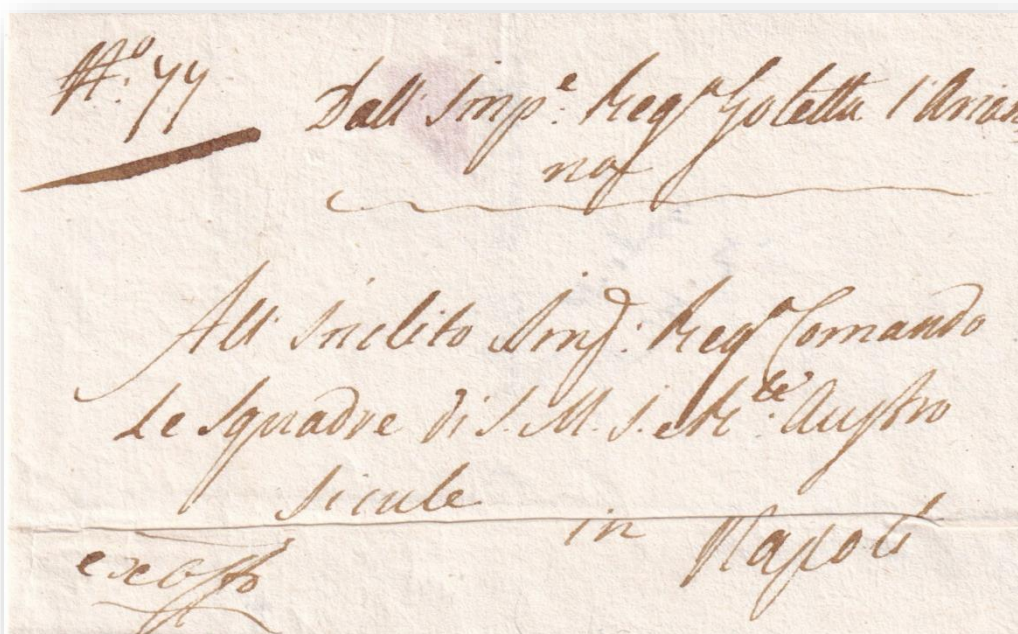 N.º 77
Dall' Imp.e Reg.a Goletta l'Arian
na
All' Inclito Imp: Reg.o Comando
le Squadre di S. M. I. e R.le Austro
Sicule
in Napoli
ex offo